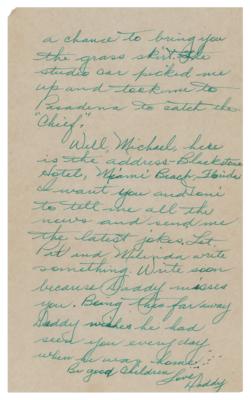 a chance to bring you
the grass skirt. The
studio car picked me
up and took me to
Pasadena to catch the
"Chief."
Well, Michael, here
is the address - Blackstone
Hotel, Miami Beach, Florida
I want you and Toni
to tell me all the
news and send me
the latest jokes. Let
Pit and Melinda write
something. Write soon
because Daddy misses
you. Being this far away
Daddy wishes he had
seen you every day
when he was home...
Be good Children
Love,
Daddy